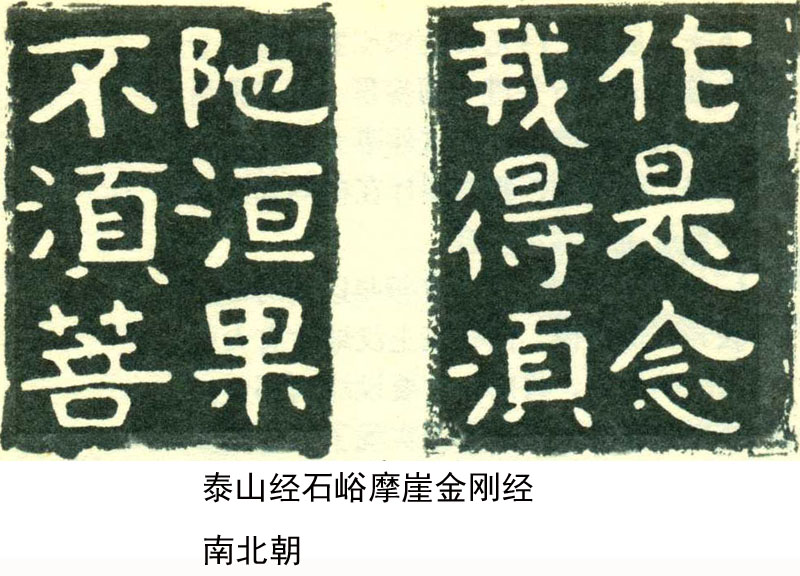 作是念
我得湏
陁洹果
不湏菩
泰山经石峪摩崖金刚经
南北朝